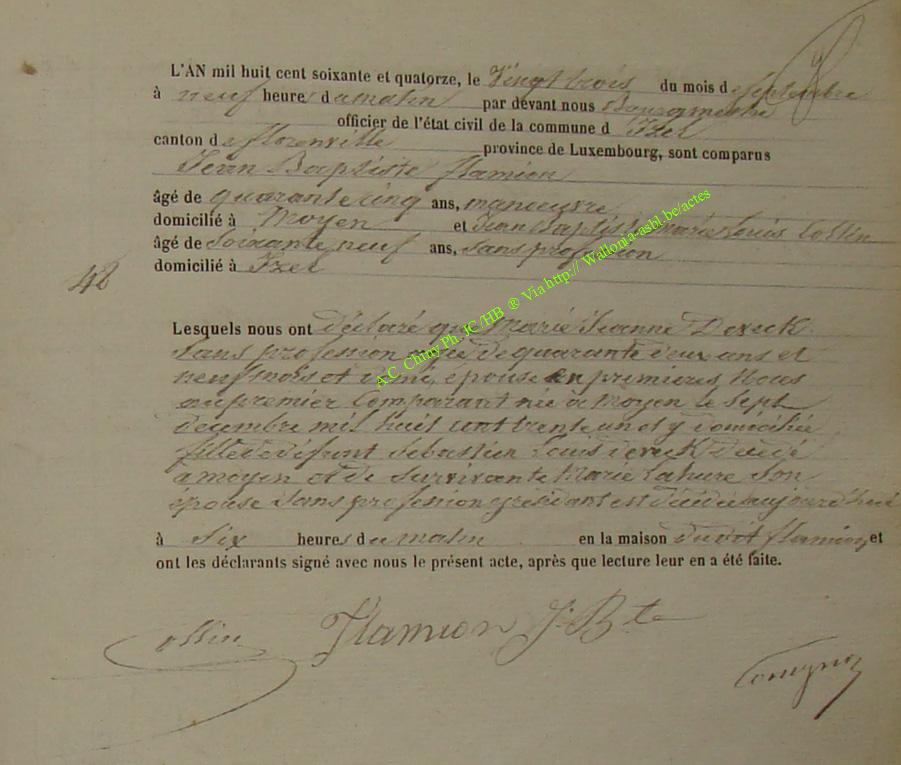 L'AN mil huit cent soixante et quatorze, le Vingt trois du mois de septembre
à neuf heures du matin par devant nous Bourgmestre
officier de l'état civil de la commune d'Izel
canton de florenville province de Luxembourg, sont comparus
Jean Baptiste flamion
âgé de quarante cinq ans, manoeuvre
domicilié à Moyen et Jean Baptiste Marie Louis Collin
âgé de Soixante neuf ans, sans profession
domicilié à Izel
48
Lesquels nous ont déclaré que Marie Jeanne Dereck
sans profession agée de quarante deux ans et
neuf mois et demi, épouse en premieres Noces
au premier Comparant née a Moyen le sept
decembre mil huit cent trente un et y domiciliée
fille de défunt Sébastien Louis dereck decedé
a moyen et de survivante Marie Lahure Son
épouse sans profession y residant est décédée aujourd'hui
à Six heures du matin en la maison dudit flamion, et
ont les déclarants signé avec nous le présent acte, après que lecture leur en a été faite.
Collin Flamion J. Bte
A.C. Chiny Ph. JC/HB ® Via http:// Wallonia-asbl.be/actes